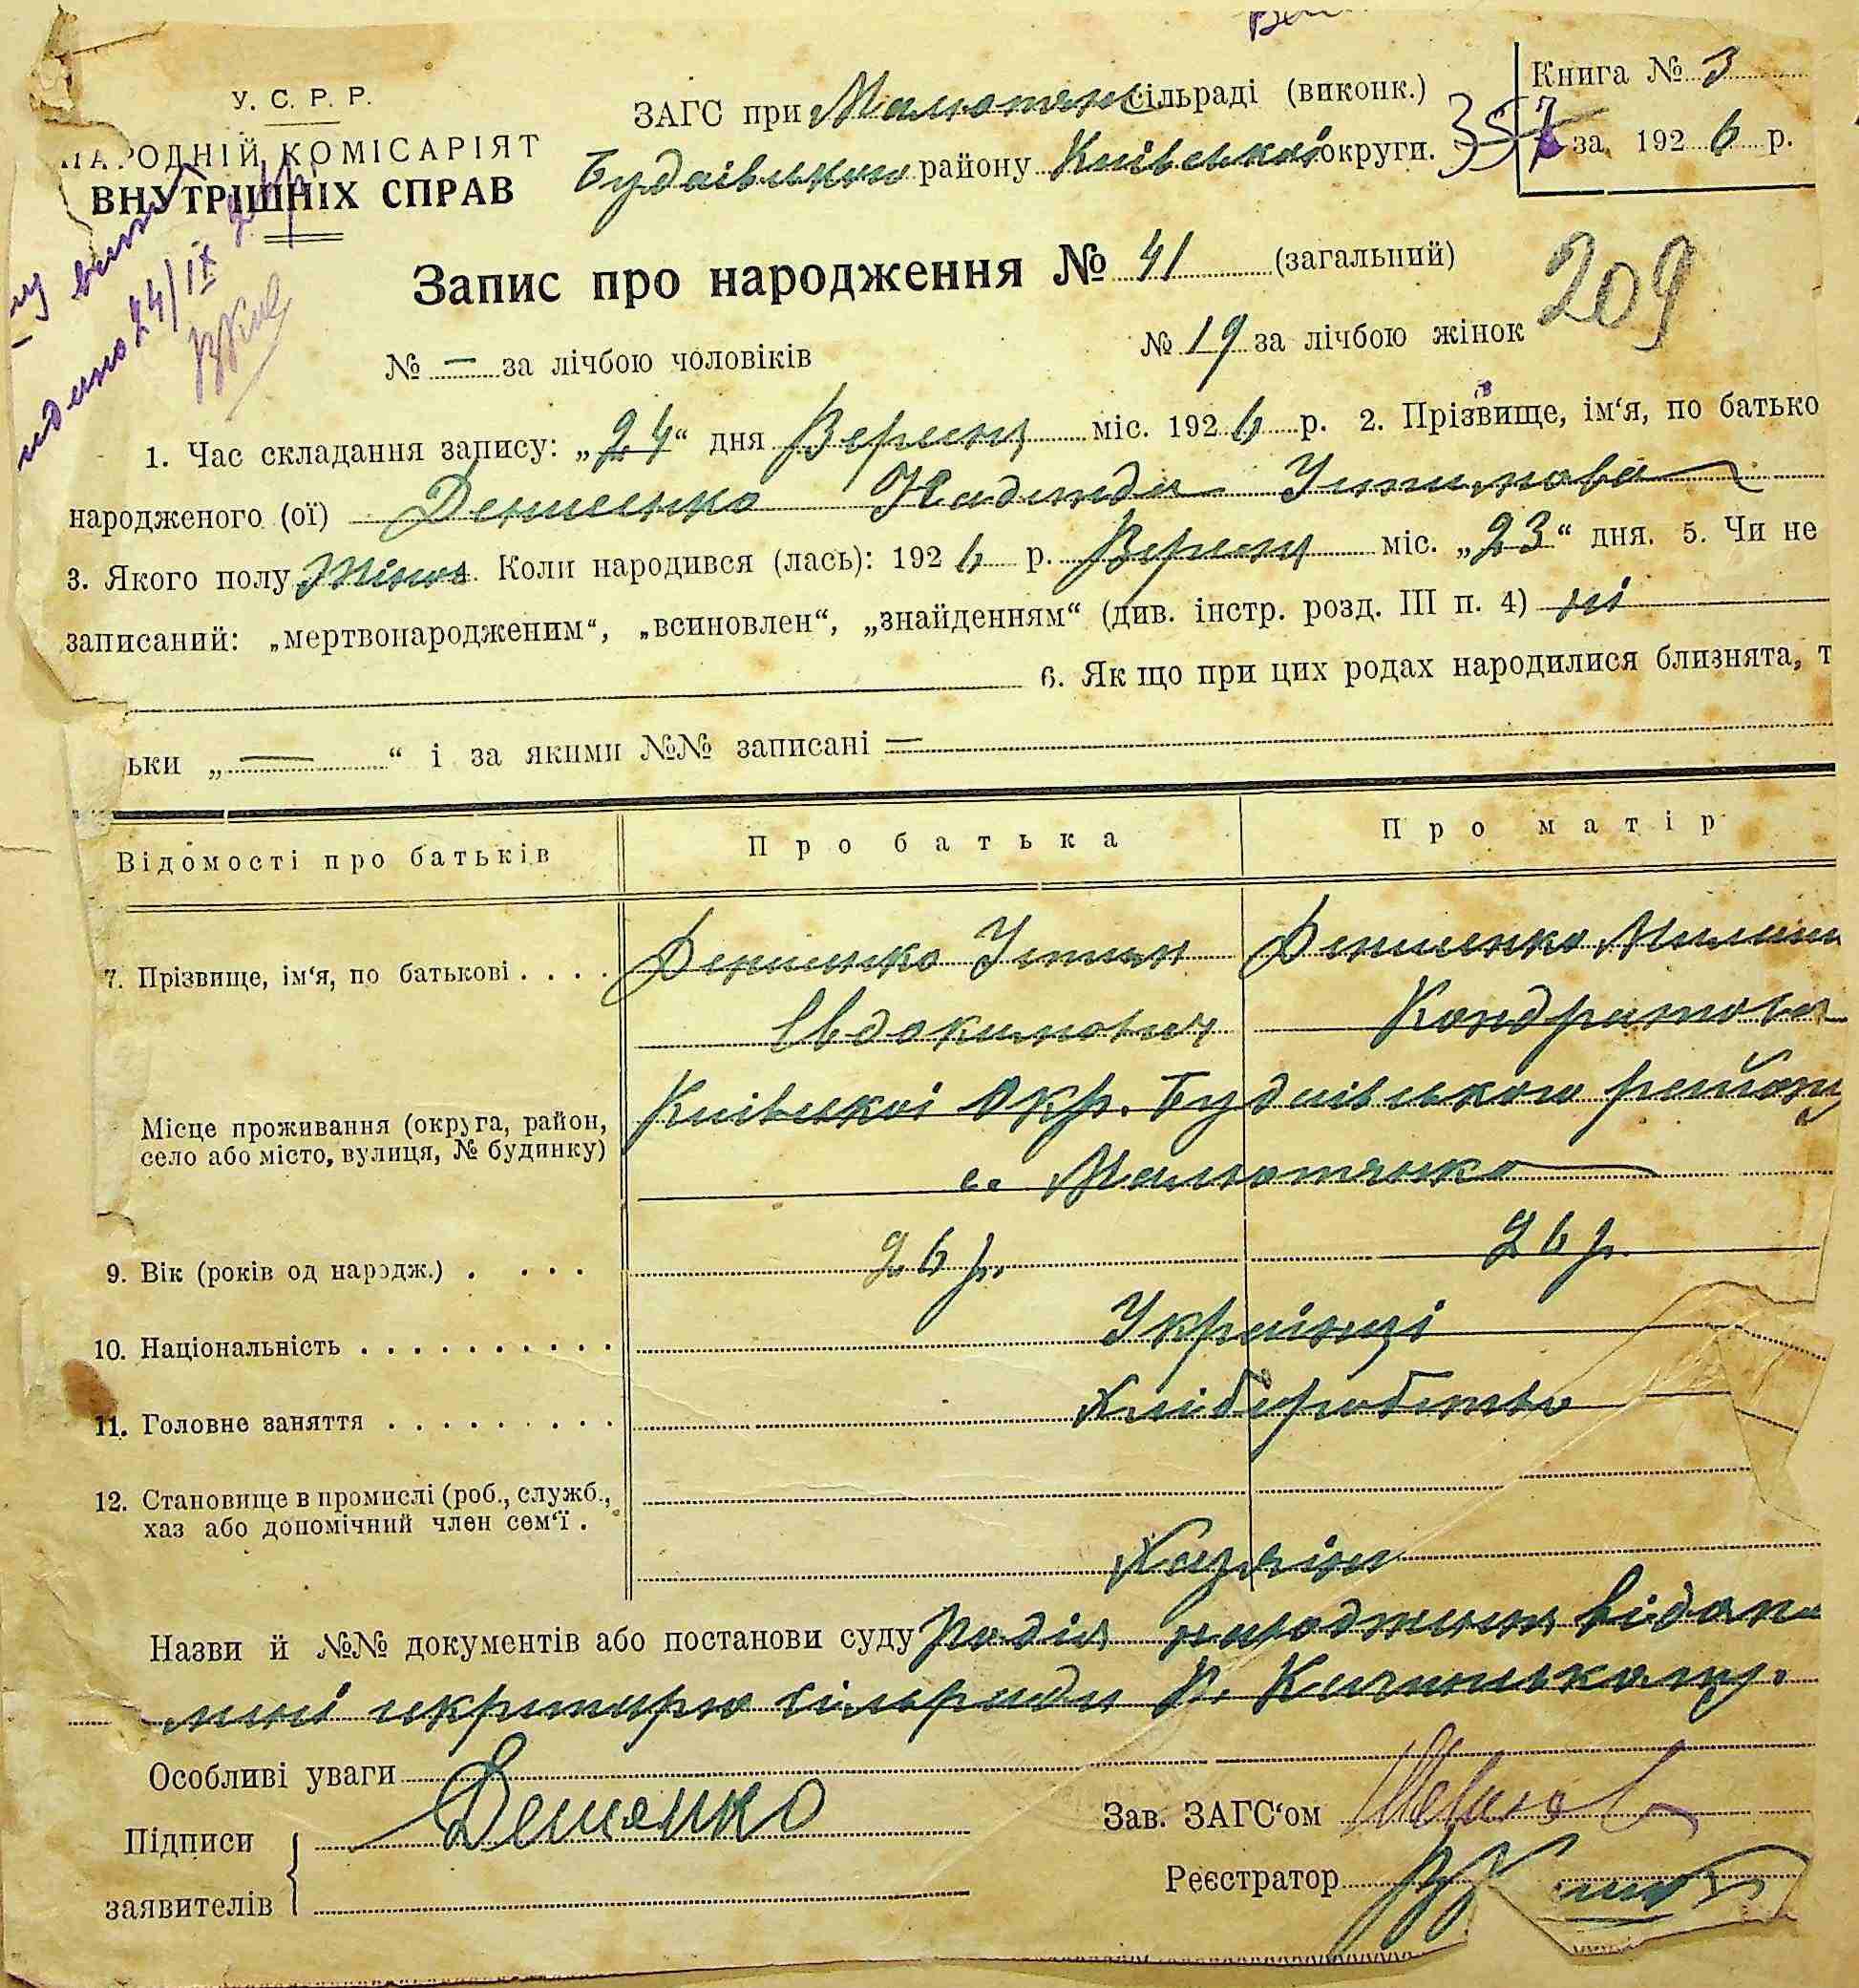 У. С. Р. Р.
НАРОДНІЙ КОМІСАРІЯТ
ВНУТРІШНІХ СПРАВ
ЗАГС при Малютян сільраді (виконк.)
Будаівського району Київської округи. 357
Книга № 3
за 1926 р.
24/IX
Запис про народження № 41 (загальний)
209
№ — за лічбою чоловіків № 19 за лічбою жінок
1. Час складання запису: „24“ дня Вересня міс. 1926 р. 2. Прізвище, ім‘я, по батько
народженого (ої) Демиенко Надежда Устимова
3. Якого полу Жіноч. Коли народився (лась): 1926 р. Вересня міс. „23“ дня. 5. Чи не
записаний: „мертвонародженим“, „всиновлен“, „знайденням“ (див. інстр. розд. III п. 4) ні
6. Як що при цих родах народилися близнята, т
ьки „—“ і за якими №№ записані —
Відомості про батьків Про батька Про матір
7. Прізвище, ім‘я, по батькові . . . . Демиенко Устим Демиенко
Євдокимович Кондратова
Місце проживання (округа, район,
село або місто, вулиця, № будинку)
Київскоі Окр. Будаівського району
с. Малютянка
9. Вік (років од народж.) . . . . 26 р. 26 р.
10. Національність . . . . . . . . . . Українці
11. Головне заняття . . . . . . . . . Хліборобство
12. Становище в промислі (роб., служб.,
хаз або допомічний член сем‘ї .
Хазяїн
Назви й №№ документів або постанови суду народження
секретарю сільради
Особливі уваги
Підписи
заявителів
Зав. ЗАГС‘ом
Реєстратор